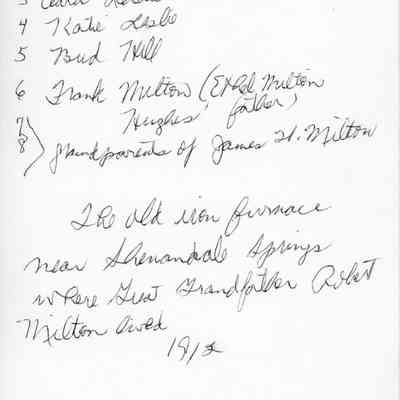 3
4 Katie Leslie
5 Bud Hill
6 Frank Milton (Ethel Milton
Hughes' father)
7
8 grandparents of James W. Milton
The old iron furnace
near Shenandale Springs
where Great Grandfather Robt
Milton lived